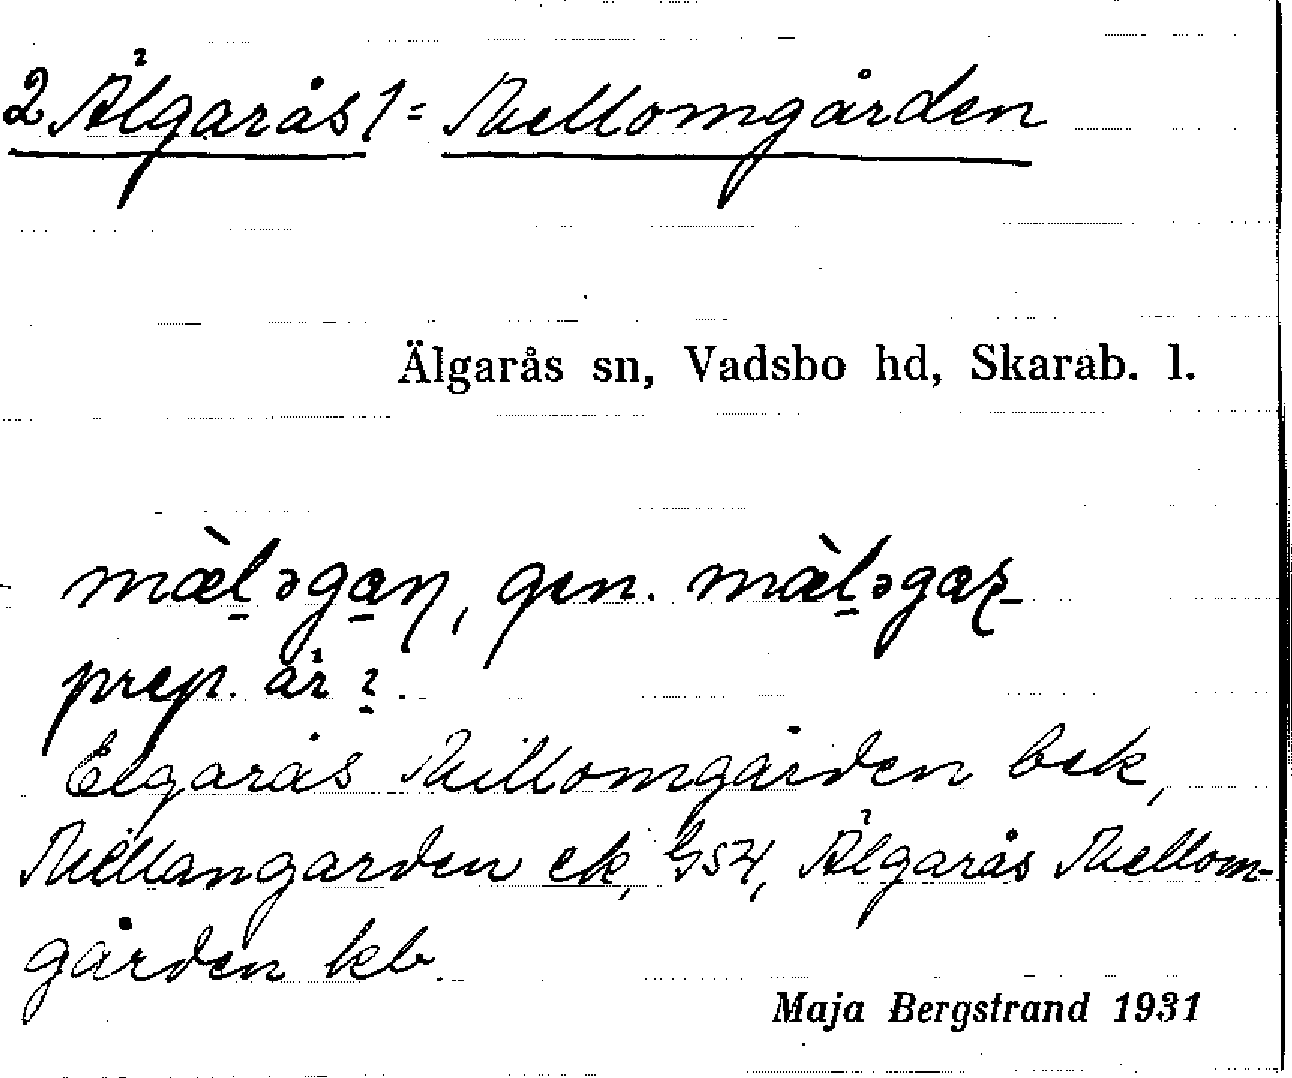 2 Älgarås 1 = Mellomgården
Älgarås sn, Vadsbo hd, Skarab. l.
mæ̀l̠əga̠ɳ, gen. mæ̀l̠əgaʂ
prep. är i̠.
Elgarås Millomgården bek,
Mellangården ek, G54, Älgarås Mellom-
gården kb
Maja Bergstrand 1931